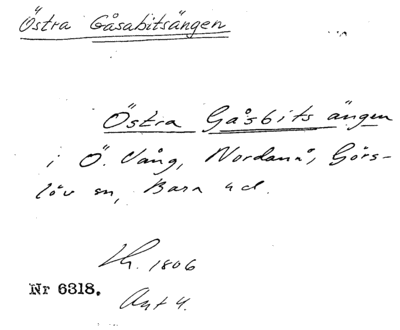 Östra Gåsabitsängen
Östra Gåsbits ängen
i Ö. Vång, Nordanå, Görs-
löv sn, Bara hd.
Lh. 1806
Nr 6318.
Akt 4.